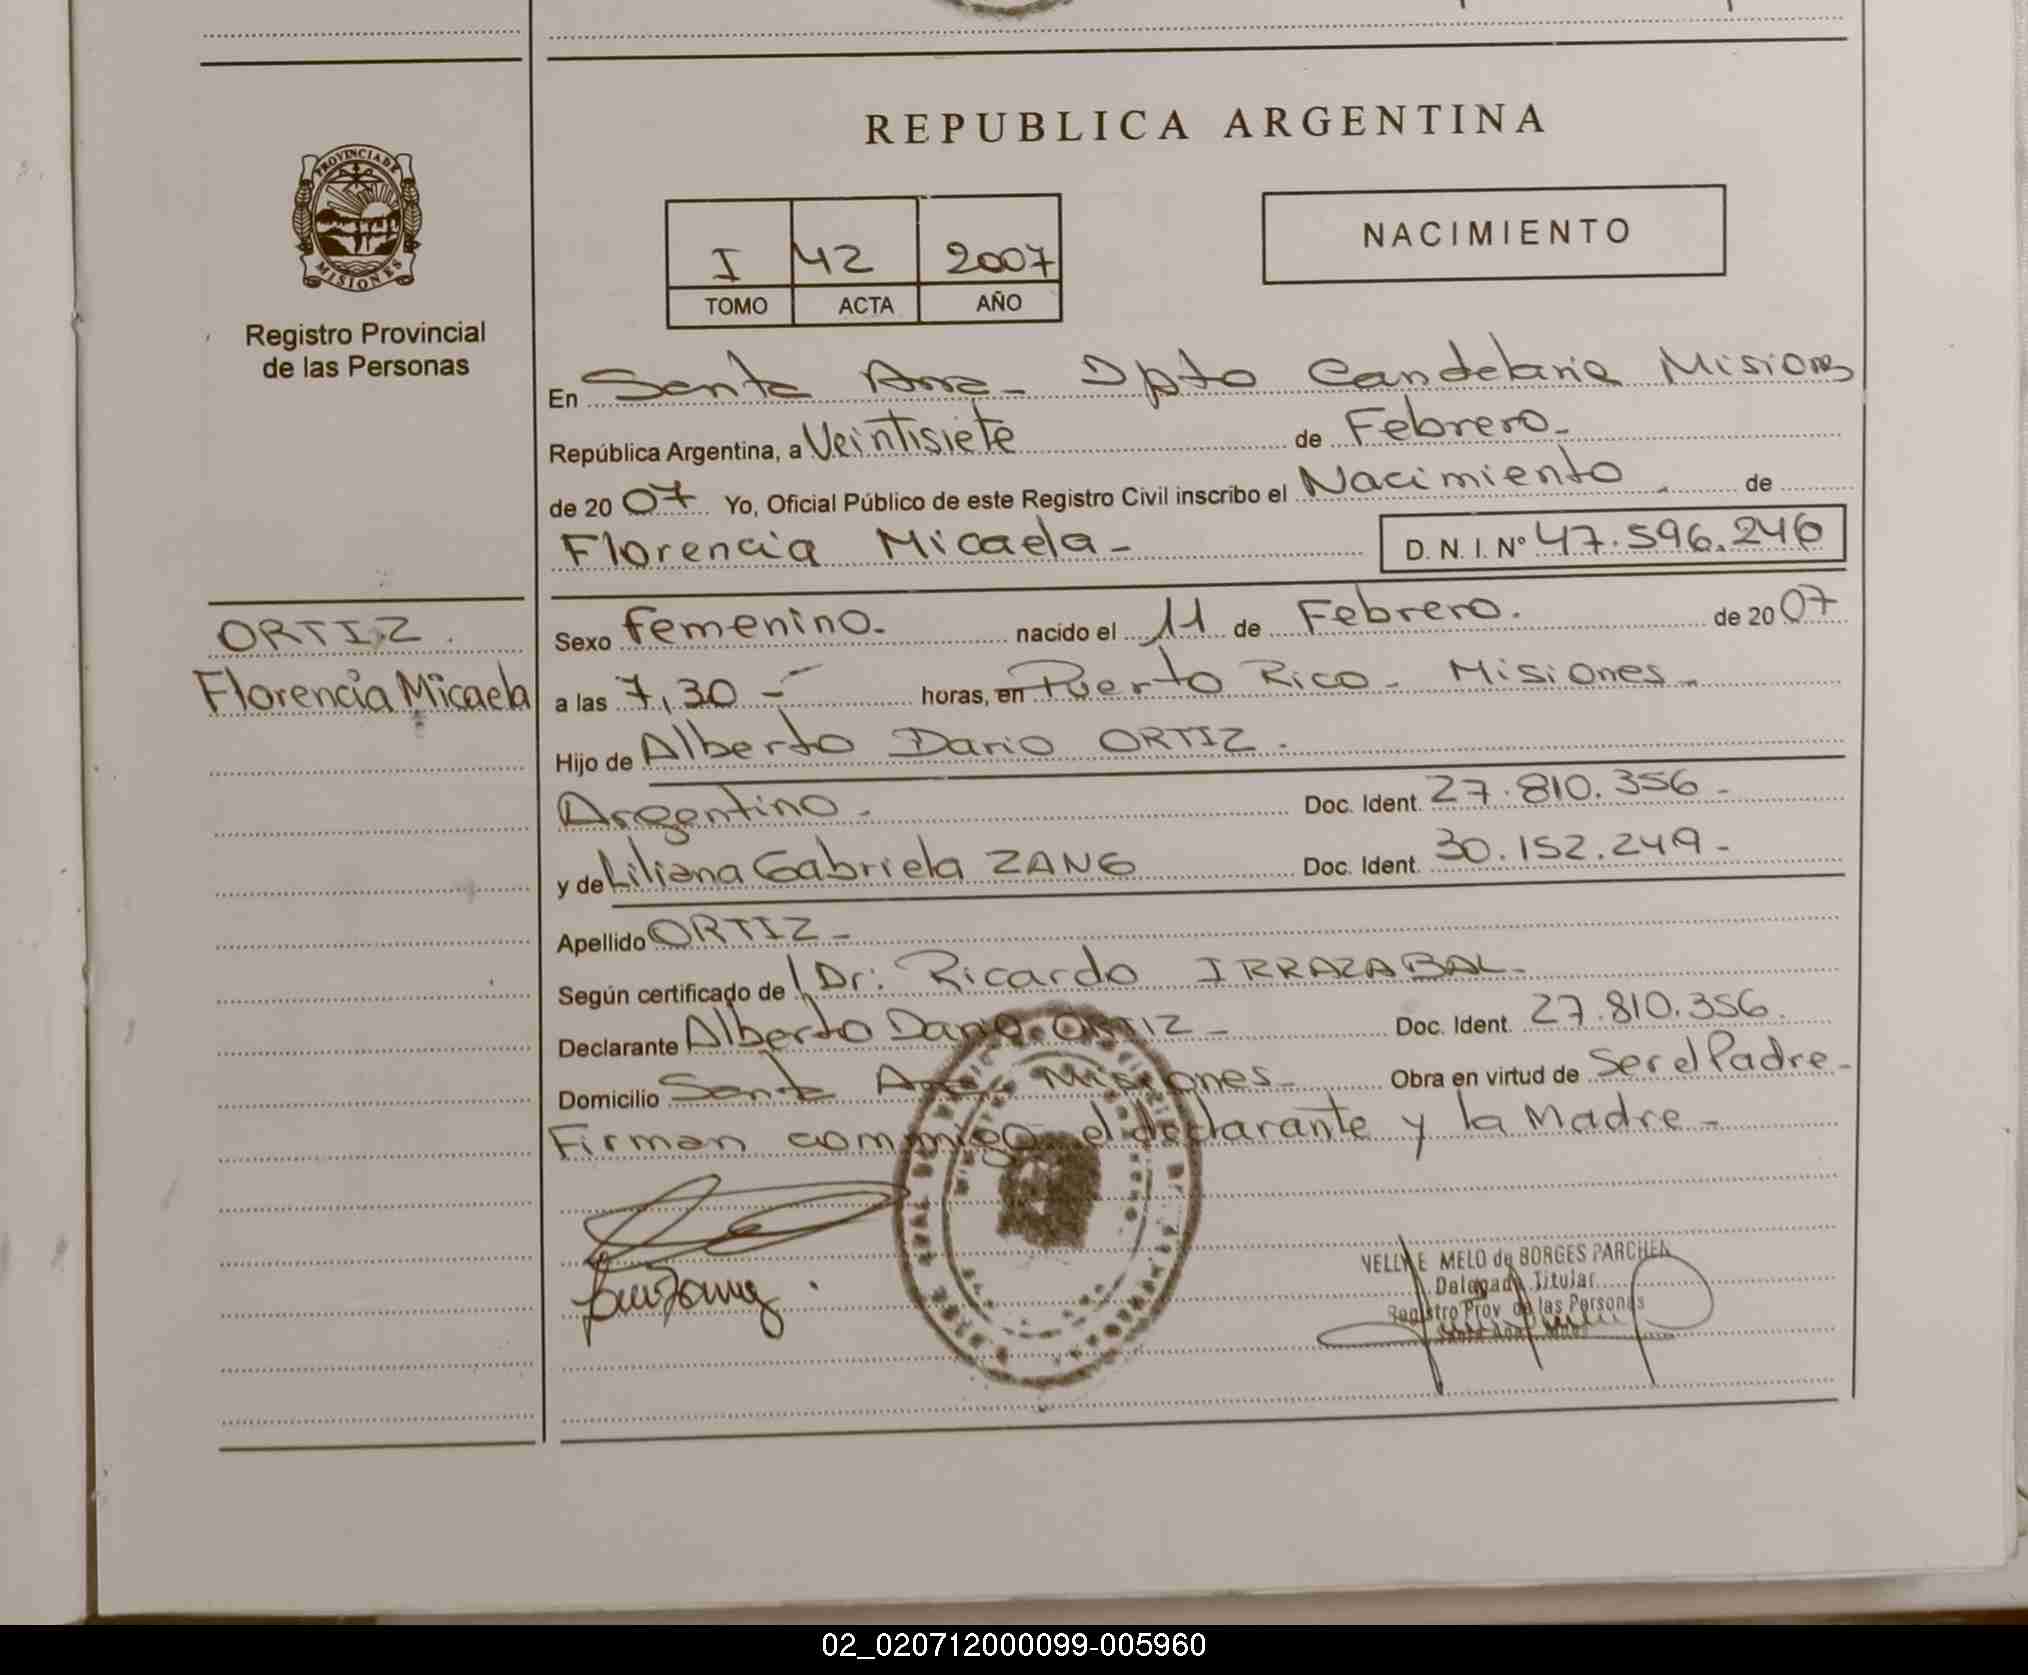 REPUBLICA ARGENTINA
PROVINCIA DE
MISIONES
Registro Provincial
de las Personas
I 42 2007
TOMO ACTA AÑO
NACIMIENTO
En Santa Ana - Dpto Candelaria Misiones
República Argentina, a Veintisiete de Febrero -
de 2007 Yo, Oficial Público de este Registro Civil inscribo el Nacimiento de
Florencia Micaela - D. N. I. Nº 47.596.246
ORTIZ.
Florencia Micaela
Sexo femenino. nacido el 11 de Febrero. de 2007
a las 7,30 - horas, en Puerto Rico - Misiones -
Hijo de Alberto Dario ORTIZ.
Argentino. Doc. Ident. 27.810.356 -
y de Liliana Gabriela ZANG Doc. Ident. 30.152.249 -
Apellido ORTIZ -
Según certificado de Dr: Ricardo IRRAZABAL -
Declarante Alberto Dario ORTIZ - Doc. Ident. 27.810.356.
Domicilio Santa Ana Misiones - Obra en virtud de Ser el Padre -
Firman conmigo el declarante y la Madre -
NELLY E. MELO de BORGES PARCHEN
Delegada Titular
Registro Prov. de las Personas
02_020712000099-005960